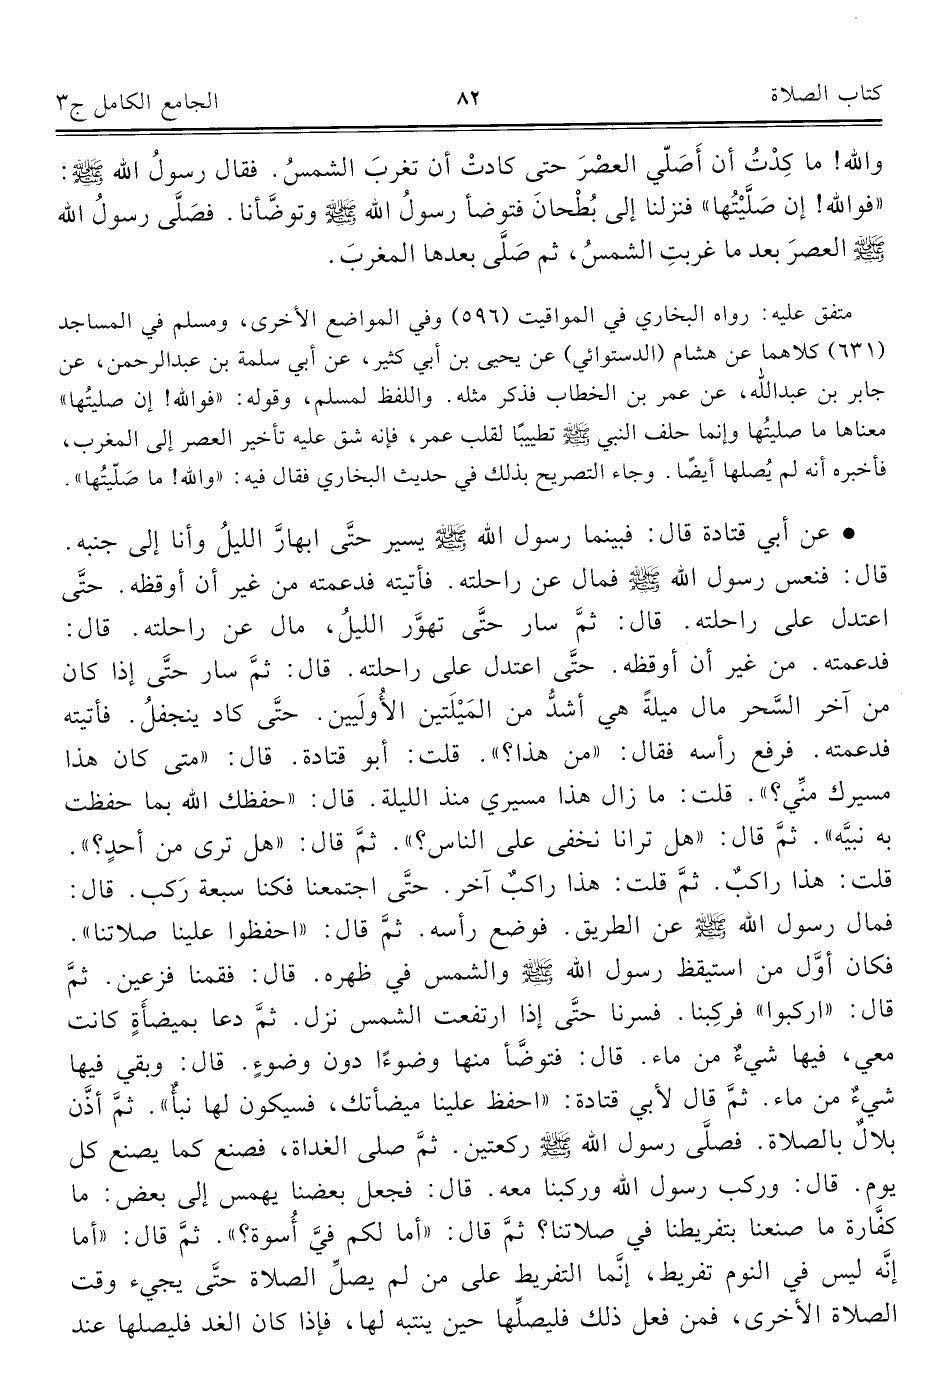 كتاب الصلاة ٨٢ الجامع الكامل ج٣
والله! ما كِدْتُ أن أَصَلّي العصْرَ حتى كادتْ أن تغربَ الشمسُ. فقال رسولُ الله ﷺ:
«فوالله! إن صَلَّيْتُها» فنزلنا إلى بُطْحانَ فتوضأ رسولُ الله ﷺ وتوضَّأنا. فصَلَّى رسولُ الله
ﷺ العصرَ بعد ما غربتِ الشمسُ، ثم صَلَّى بعدها المغربَ.
متفق عليه: رواه البخاري في المواقيت (٥٩٦) وفي المواضع الأخرى، ومسلم في المساجد
(٦٣١) كلاهما عن هشام (الدستوائي) عن يحيى بن أبي كثير، عن أبي سلمة بن عبدالرحمن، عن
جابر بن عبدالله، عن عمر بن الخطاب فذكر مثله. واللفظ لمسلم، وقوله: «فوالله! إن صليتُها»
معناها ما صليتُها وإنما حلف النبي ﷺ تطييبًا لقلب عمر، فإنه شق عليه تأخير العصر إلى المغرب،
فأخبره أنه لم يُصلها أيضًا. وجاء التصريح بذلك في حديث البخاري فقال فيه: «والله! ما صَلّيتُها».
• عن أبي قتادة قال: فبينما رسول الله ﷺ يسير حتَّى ابهارَّ الليلُ وأنا إلى جنبه.
قال: فنعس رسول الله ﷺ فمال عن راحلته. فأتيته فدعمته من غير أن أوقظه. حتَّى
اعتدل على راحلته. قال: ثمَّ سار حتَّى تهوَّر الليلُ، مال عن راحلته. قال:
فدعمته. من غير أن أوقظه. حتَّى اعتدل على راحلته. قال: ثمَّ سار حتَّى إذا كان
من آخر السَّحر مال ميلةً هي أشدُّ من المَيْلَتين الأُولَيين. حتَّى كاد ينجفلُ. فأتيته
فدعمته. فرفع رأسه فقال: «من هذا؟». قلت: أبو قتادة. قال: «متى كان هذا
مسيرك منِّي؟». قلت: ما زال هذا مسيري منذ الليلة. قال: «حفظك الله بما حفظت
به نبيَّه». ثمَّ قال: «هل ترانا نخفى على الناس؟». ثمَّ قال: «هل ترى من أحدٍ؟».
قلت: هذا راكبٌ. ثمَّ قلت: هذا راكبٌ آخر. حتَّى اجتمعنا فكنا سبعة رَكب. قال:
فمال رسول الله ﷺ عن الطريق. فوضع رأسه. ثمَّ قال: «احفظوا علينا صلاتنا».
فكان أوَّل من استيقظ رسول الله ﷺ والشمس في ظهره. قال: فقمنا فزعين. ثمَّ
قال: «اركبوا» فركِبنا. فسرنا حتَّى إذا ارتفعت الشمس نزل. ثمَّ دعا بميضأةٍ كانت
معي، فيها شيءٌ من ماء. قال: فتوضَّأ منها وضوءًا دون وضوءٍ. قال: وبقي فيها
شيءٌ من ماء. ثمَّ قال لأبي قتادة: «احفظ علينا ميضأتك، فسيكون لها نبأٌ». ثمَّ أذَّن
بلالٌ بالصلاة. فصلَّى رسول الله ﷺ ركعتين. ثمَّ صلى الغداة، فصنع كما يصنع كل
يوم. قال: وركب رسول الله وركبنا معه. قال: فجعل بعضنا يهمس إلى بعض: ما
كفَّارة ما صنعنا بتفريطنا في صلاتنا؟ ثمَّ قال: «أما لكم فيَّ أُسوة؟». ثمَّ قال: «أما
إنَّه ليس في النوم تفريط، إنَّما التفريط على من لم يصلِّ الصلاة حتَّى يجيء وقت
الصلاة الأخرى، فمن فعل ذلك فليصلِّها حين ينتبه لها، فإذا كان الغد فليصلها عند